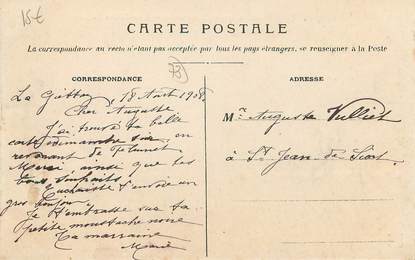 15€
CARTE POSTALE
La correspondance au recto n'étant pas acceptée par tous les pays étrangers, se renseigner à la Poste
73
CORRESPONDANCE
ADRESSE
La Giettaz 18 Août 1908
Cher Auguste
J'ai trouvé ta belle
carte dimanche soir en
revenant de Flumet
Merci, ainsi que tes
bons souhaits
t'envoie un
gros bonjour
Je t'embrasse sur ta
petite moustache noire
Ta marraine
Marie
Mr Auguste Vulliet
à St Jean de Sixt